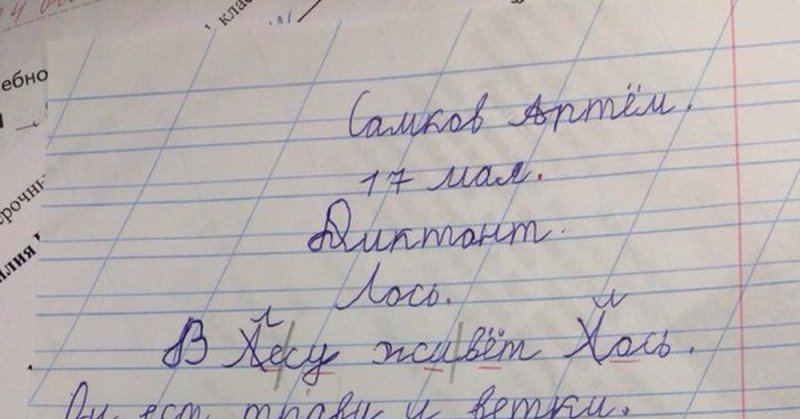 класс
ебно
срочны
илия
Самков Артём.
17 мая.
Диктант.
Лось.
В лесу живёт лось.
Он ест траву и ветки.